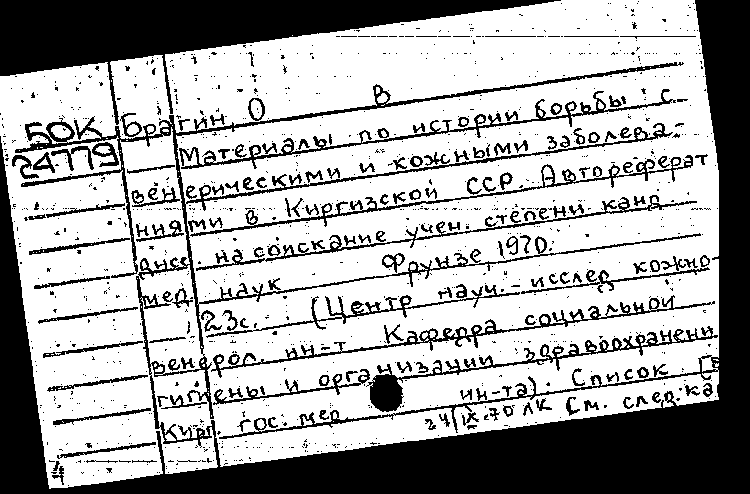 БОК Брагин, О В
24779 Материалы по истории борьбы с
венерическими и кожными заболева-
ниями в Киргизской ССР. Автореферат
дисс. на соискание учен. степени канд.
мед. наук Фрунзе, 1970.
23с. (Центр науч.-исслед кожно-
венерол. ин-т Кафедра социальной
гигиены и организации здравоохранени
Кирг. гос. мед ин-та). Список
24/IX-70 ЛК См. след. ка
4